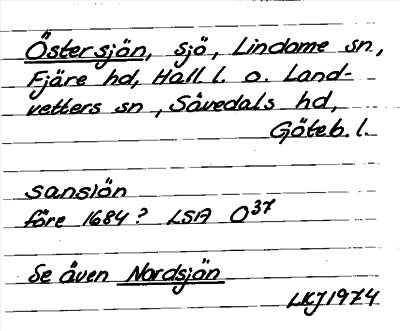 Östersjön, sjö, Lindome sn,
Fjäre hd, Hall l. o. Land-
vetters sn, Sävedals hd,
Göteb. l.
sansiön
före 1684? LSA O37
Se även Nordsjön
LKJ 1974